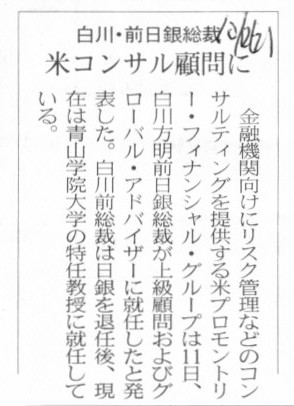 白川・前日銀総裁
米コンサル顧問に
金融機関向けにリスク管理などのコン
サルティングを提供する米プロモントリ
ー・フィナンシャル・グループは11日、
白川方明前日銀総裁が上級顧問およびグ
ローバル・アドバイザーに就任したと発
表した。白川前総裁は日銀を退任後、現
在は青山学院大学の特任教授に就任して
いる。